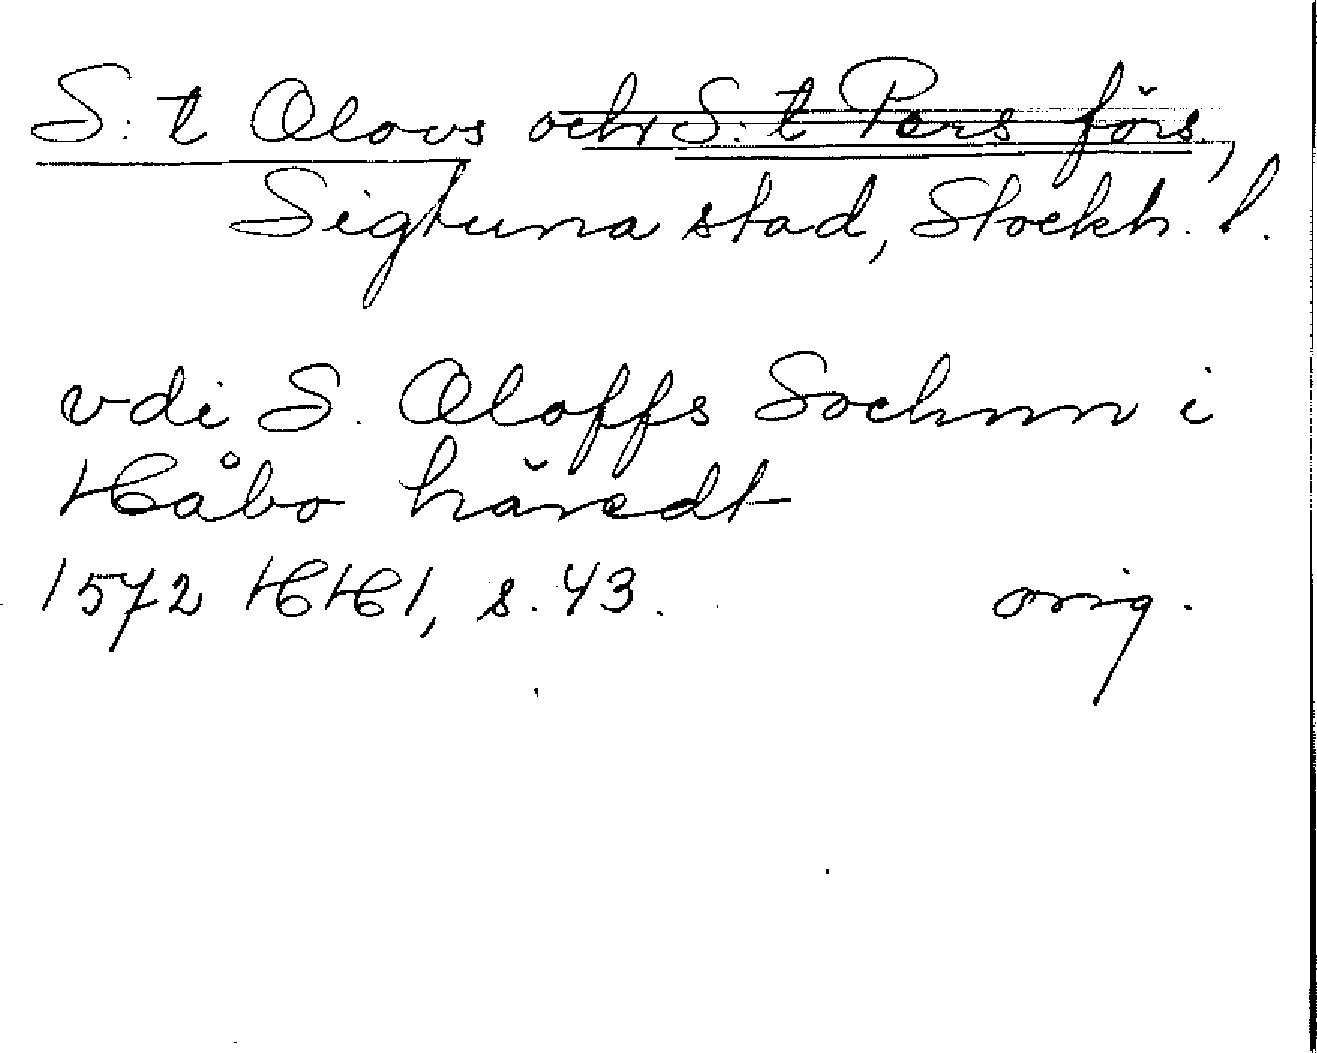 S:t Olovs och S:t Pers förs.,
Sigtuna stad, Stockh. l.
vdi S. Oloffs Sochnn i
Håbo häredt
1572 HH1, s. 43. orig.